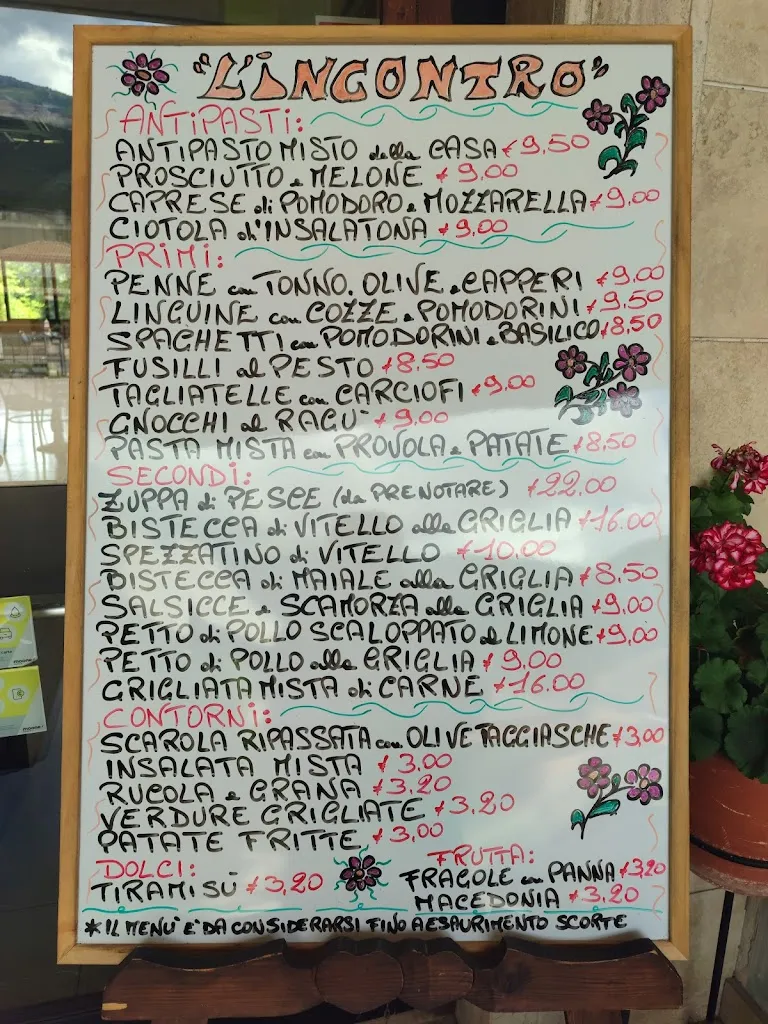 "L'iNCONTRO"
ANTiPASTi:
ANTIPASTO MISTO della CASA €9,50
PROSCIUTTO e MELONE €9,00
CAPRESE di POMODORO e MOZZARELLA €9,00
CIOTOLA d'INSALATONA €9,00
PRIMI:
PENNE con TONNO, OLIVE e CAPPERI €9,00
LINGUINE con COZZE e POMODORINI €9,50
SPAGHETTI con POMODORINI e BASILICO €8,50
FUSILLI al PESTO €8,50
TAGLIATELLE con CARCIOFI €9,00
GNOCCHI al RAGU' €9,00
PASTA MISTA con PROVOLA e PATATE €8,50
SECONDI:
ZUPPA di PESCE (da PRENOTARE) €22,00
BISTECCA di VITELLO alla GRIGLIA €16,00
SPEZZATINO di VITELLO €10,00
BISTECCA di MAIALE alla GRIGLIA €8,50
SALSICCE e SCAMORZA alla GRIGLIA €9,00
PETTO di POLLO SCALOPPATO al LIMONE €9,00
PETTO di POLLO alla GRIGLIA €9,00
GRIGLIATA MISTA di CARNE €16,00
CONTORNI:
SCAROLA RIPASSATA con OLIVE TAGGIASCHE €3,00
INSALATA MISTA €3,00
RUCOLA e GRANA €3,20
VERDURE GRIGLIATE €3,20
PATATE FRITTE €3,00
DOLCI:
TIRAMISÙ €3,20
FRUTTA:
FRAGOLE con PANNA €3,20
MACEDONIA €3,20
*IL MENU' E' DA CONSIDERARSI FINO A ESAURIMENTO SCORTE